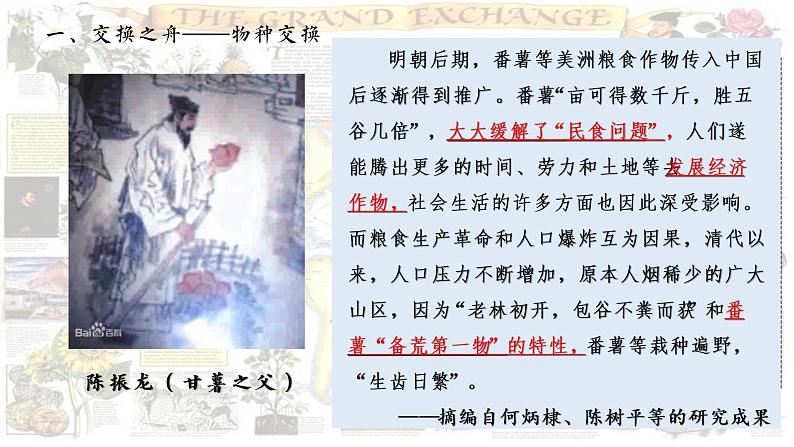 THE GRAND EXCHANGE
一、交换之舟——物种交换
明朝后期，番薯等美洲粮食作物传入中国
后逐渐得到推广。番薯“亩可得数千斤，胜五
谷几倍”，大大缓解了“民食问题”，人们遂
能腾出更多的时间、劳力和土地等去发展经济
作物，社会生活的许多方面也因此深受影响。
而粮食生产革命和人口爆炸互为因果，清代以
来，人口压力不断增加，原本人烟稀少的广大
山区，因为“老林初开，包谷不粪而获”和番
薯“备荒第一物”的特性，番薯等栽种遍野，
“生齿日繁”。
——摘编自何炳棣、陈树平等的研究成果
Bai百科
陈振龙（甘薯之父）